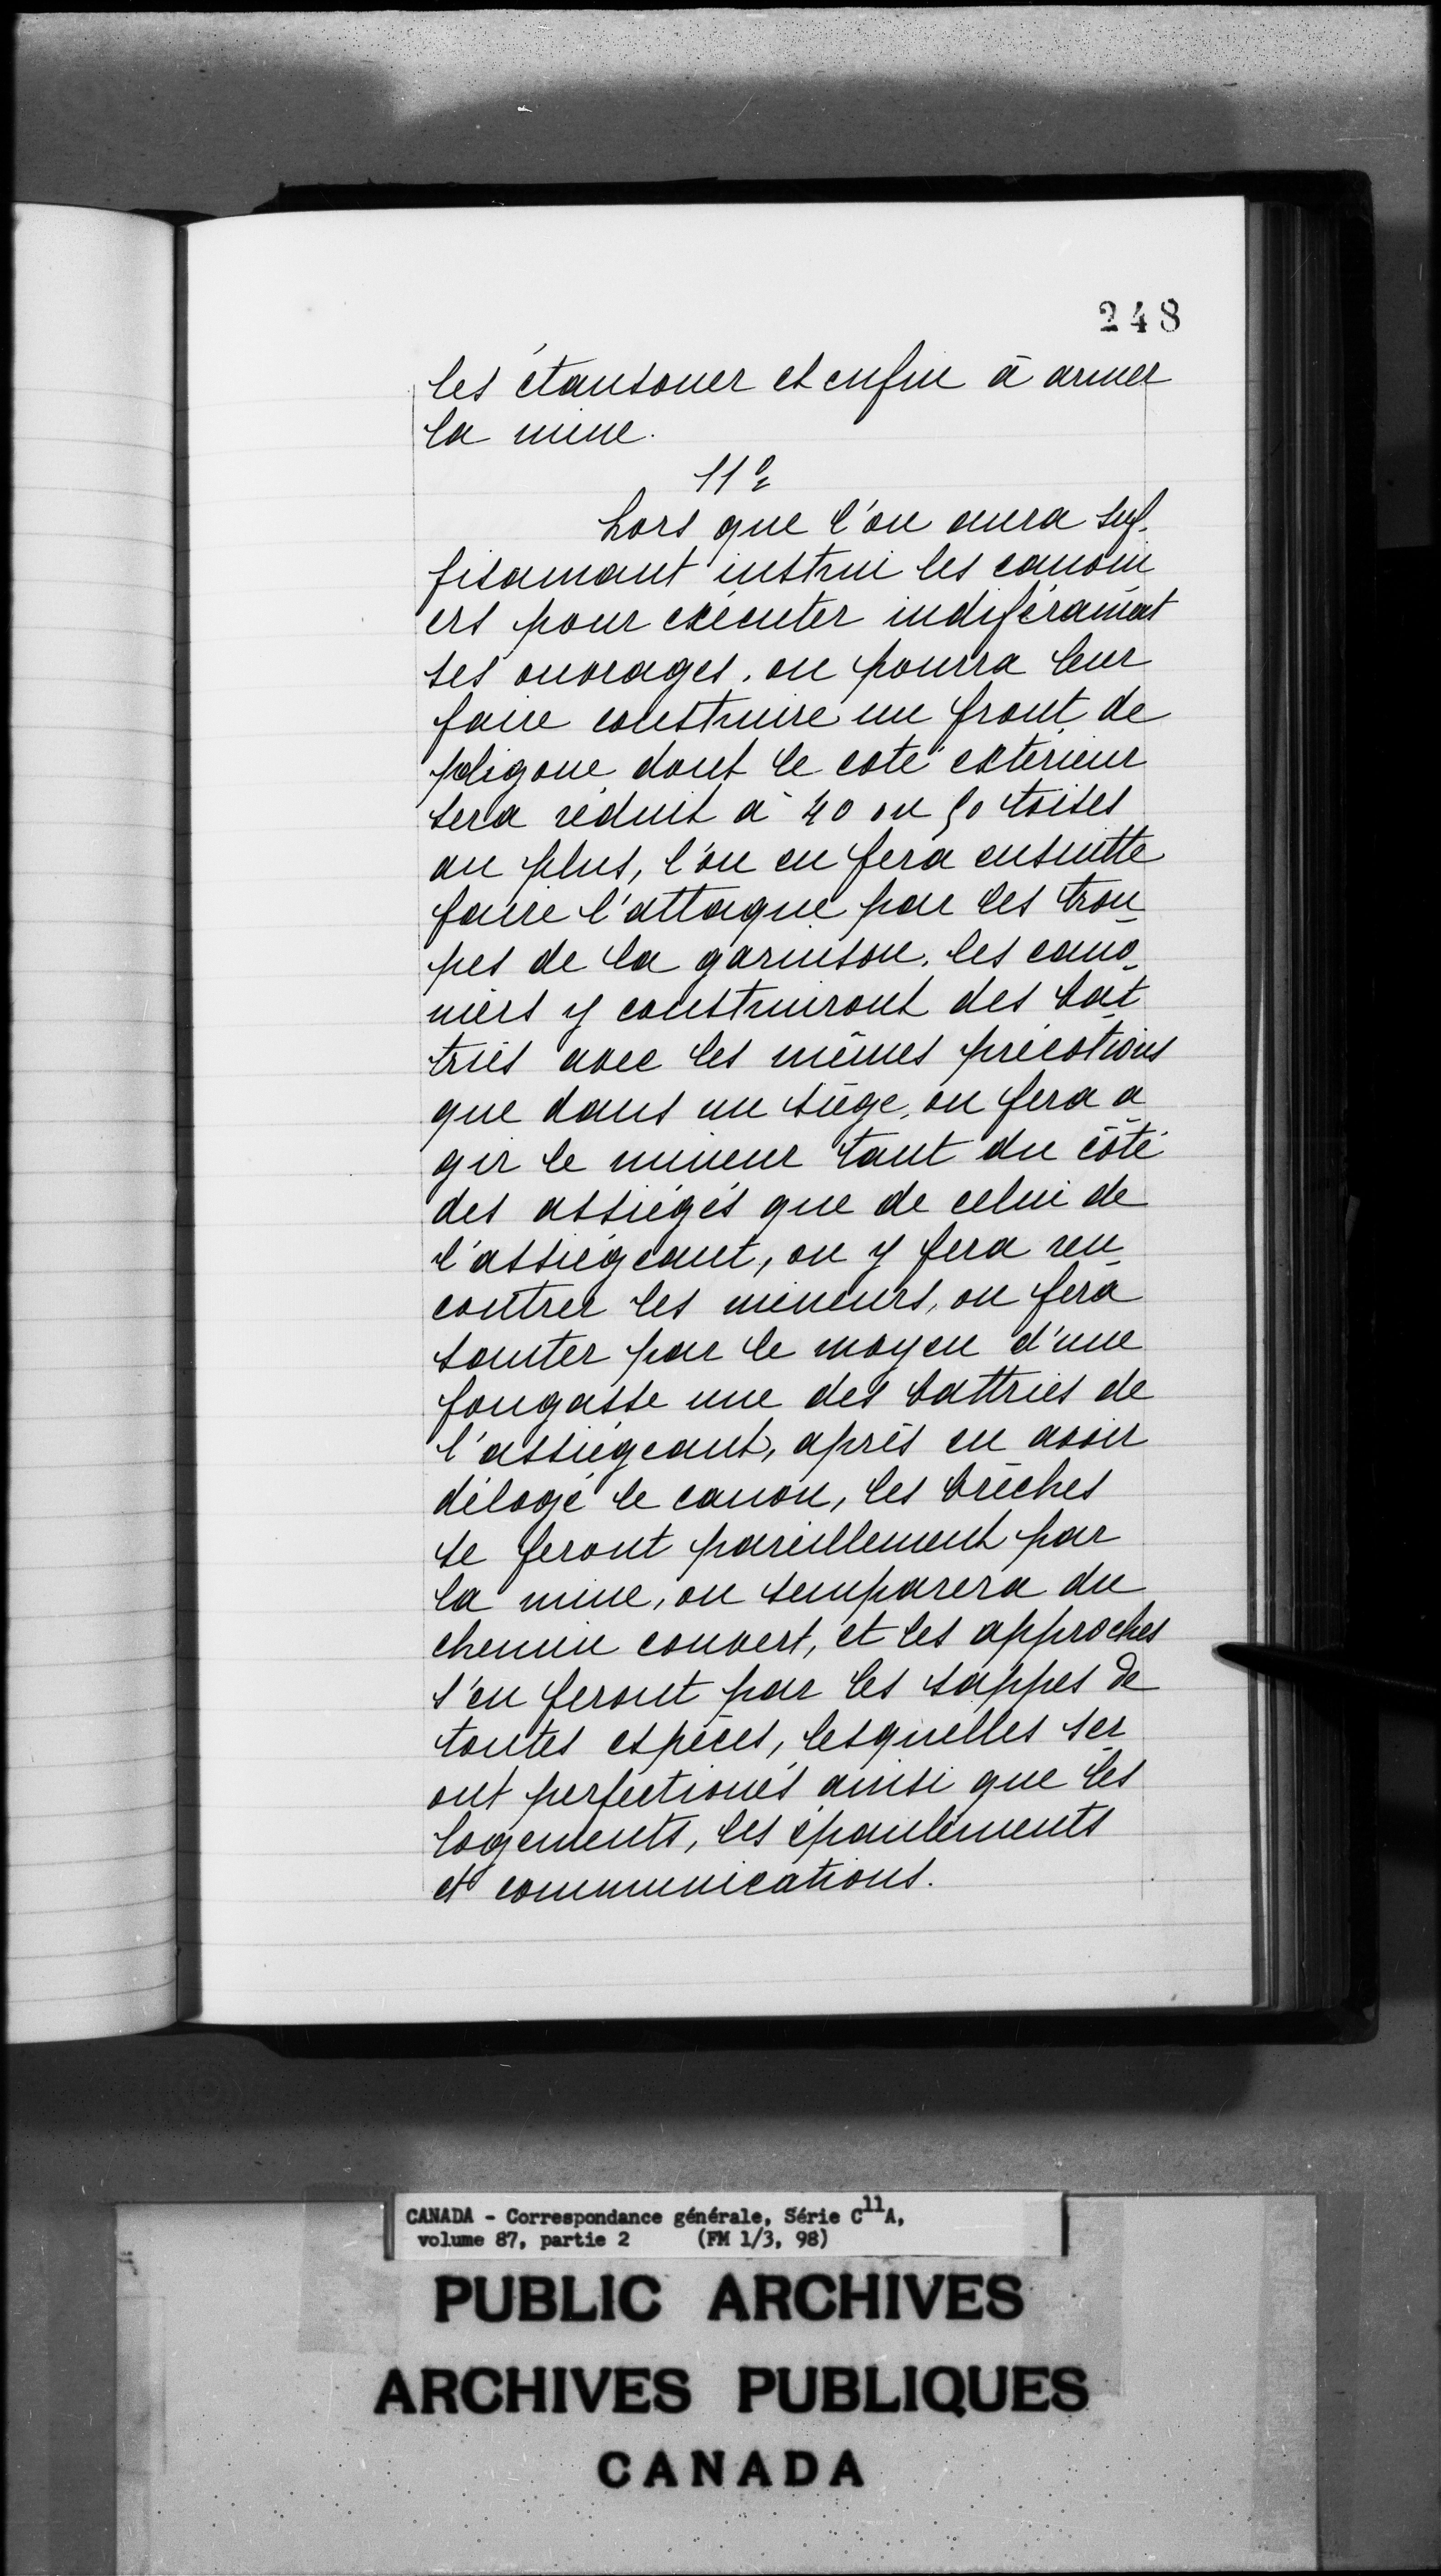 248
les étansoner et enfin à armer
la mine.
11º
Lors que l'on aura suf-
fisamant instrui les canoni
ers pour exécuter indiféramãt
ses ouvrages, on pourra leur
faire construire un front de
poligone dont le coté extérieur
sera réduit à 40 ou 50 toises
au plus, l'on en fera ensuitte
faire l'attaque par les trou-
pes de la garnison, les cano-
niers y construiront des bat-
tries avec les mêmes précotions
que dans un siège, on fera a-
gir le mineur tant du côté
des assiégés que de celui de
l'assiégeant, on y fera ren-
contrer les mineurs, on fera
sauter par le moyen d'une
fougasse une des battries de
l'assiégeant, après en avoir
délogé le canon, les brèches
se feront pareillement par
la mine, on semparera du
chemin couvert, et les approches
s'en feront par les sappes de
toutes espèces, lesquelles ser-
ont perfectionés ainsi que les
logements, les épaulements
et communications.
CANADA - Correspondance générale, Série C11A,
volume 87, partie 2 (FM 1/3, 98)
PUBLIC ARCHIVES
ARCHIVES PUBLIQUES
CANADA